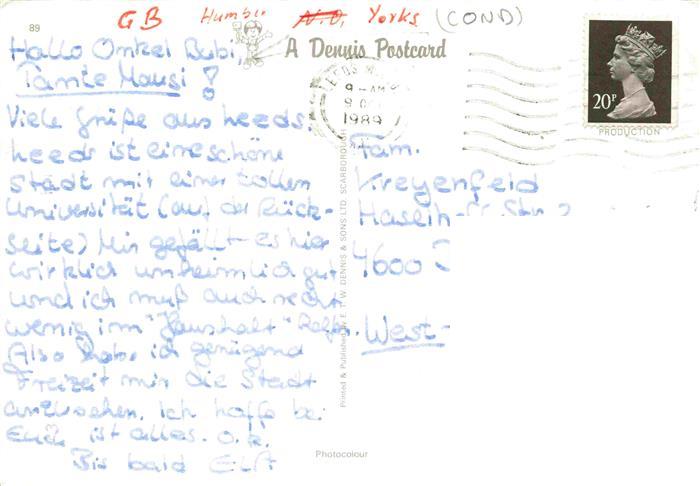 89
GB Humbr N.O, Yorks (COND)
A Dennis Postcard
LEEDS
9 - AM
9 OC
1989
20P
PRODUCTION
Hallo Onkel Bubi,
Tante Mausi!
Viele Grüße aus Leeds.
Leeds ist eine schöne
Stadt mit einer tollen
Universität (auf der Rück-
seite) Mir gefällt es hier
wirklich unheimlich gut
und ich muß auch recht
wenig im "Haushalt" helfen.
Also habe ich genügend
Freizeit mir die Stadt
anzusehen. Ich hoffe bei
Euch ist alles o.k.
Bis bald ELA
Printed & Published by E. T. W. DENNIS & SONS LTD. SCARBOROUGH
Fam.
Kreyenfeld
Str.
4600
West-
Photocolour